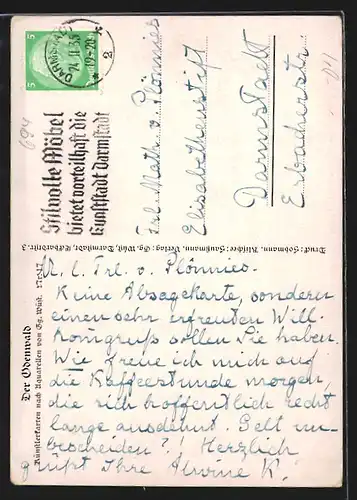 5 5
DARMSTADT
24.11.35
19-20
2
Stilvolle Möbel
bietet vorteilhaft die
Kunststadt Darmstadt
694
Frl. Math. v. Plönnies
Elisabethenstift
Darmstadt
Erbacherstr.
Druck: Hohmann, Klischee: Haußmann, Verlag: Gg. Wüst, Darmstadt,
Der Odenwald
Künstlerkarten nach Aquarellen von Gg. Wüst.
M. l. Frl. v. Plönnies.
Keine Absagekarte, sondern
einen sehr erfreuten Will-
komgruß sollen Sie haben.
Wie freue ich mich auf
die Kaffeestunde morgen,
die sich hoffentlich recht
lange ausdehnt. Gelt un-
bescheiden?! Herzlich
grüßt Ihre K.